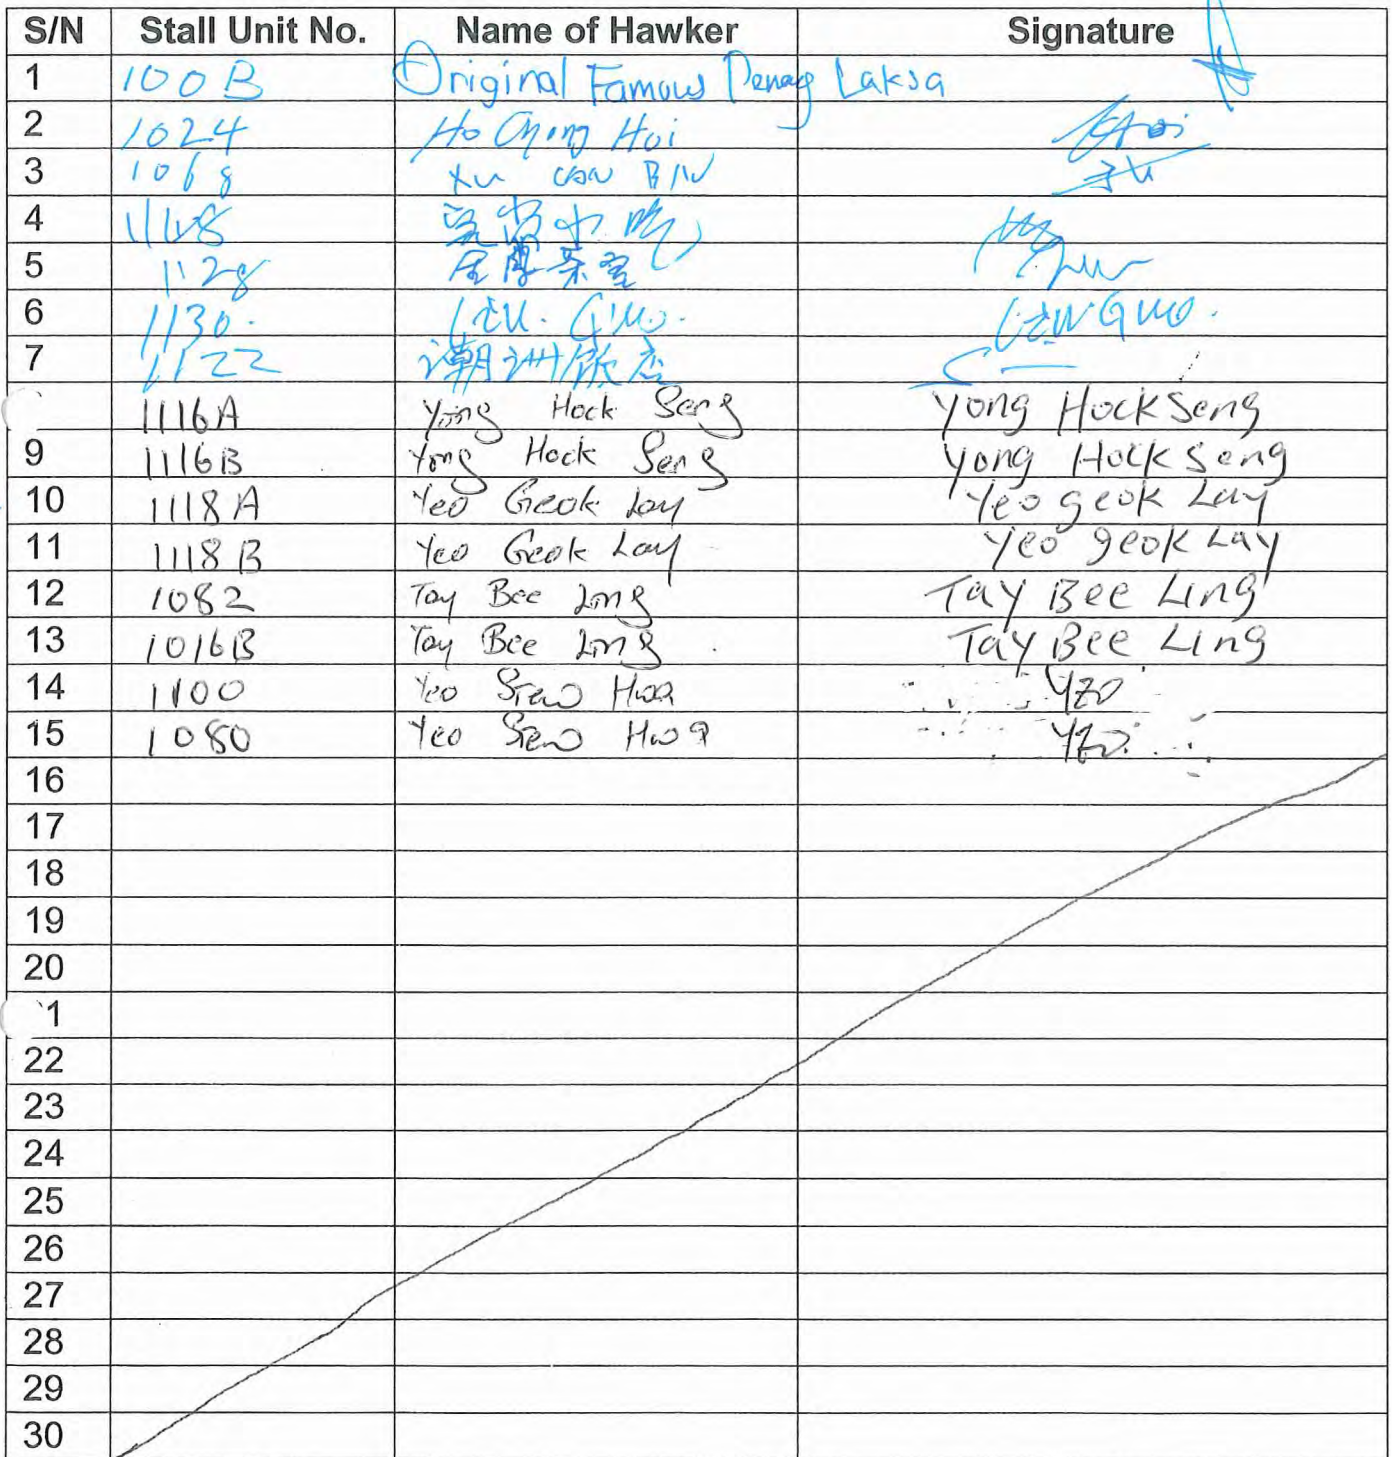 S/N Stall Unit No. Name of Hawker Signature
1 100B Original Famous Penag Laksa
2 1024 Ho Chong Hoi
3 1068 Xu
4 小吃
5 1128
6 1130. GUO. GUO.
7 1122 潮洲饭店
1116A Yong Hock Seng Yong Hock Seng
9 1116B Yong Hock Seng Yong Hock Seng
10 1118A Yeo Geok Lay Yeo geok Lay
11 1118B Yeo Geok Lay Yeo geok Lay
12 1082 Tay Bee Ling Tay Bee Ling
13 1016B Tay Bee Ling Tay Bee Ling
14 1100 Yeo Siew Hwa YEO
15 1080 Yeo Siew Hwa YEO
16
17
18
19
20
1
22
23
24
25
26
27
28
29
30